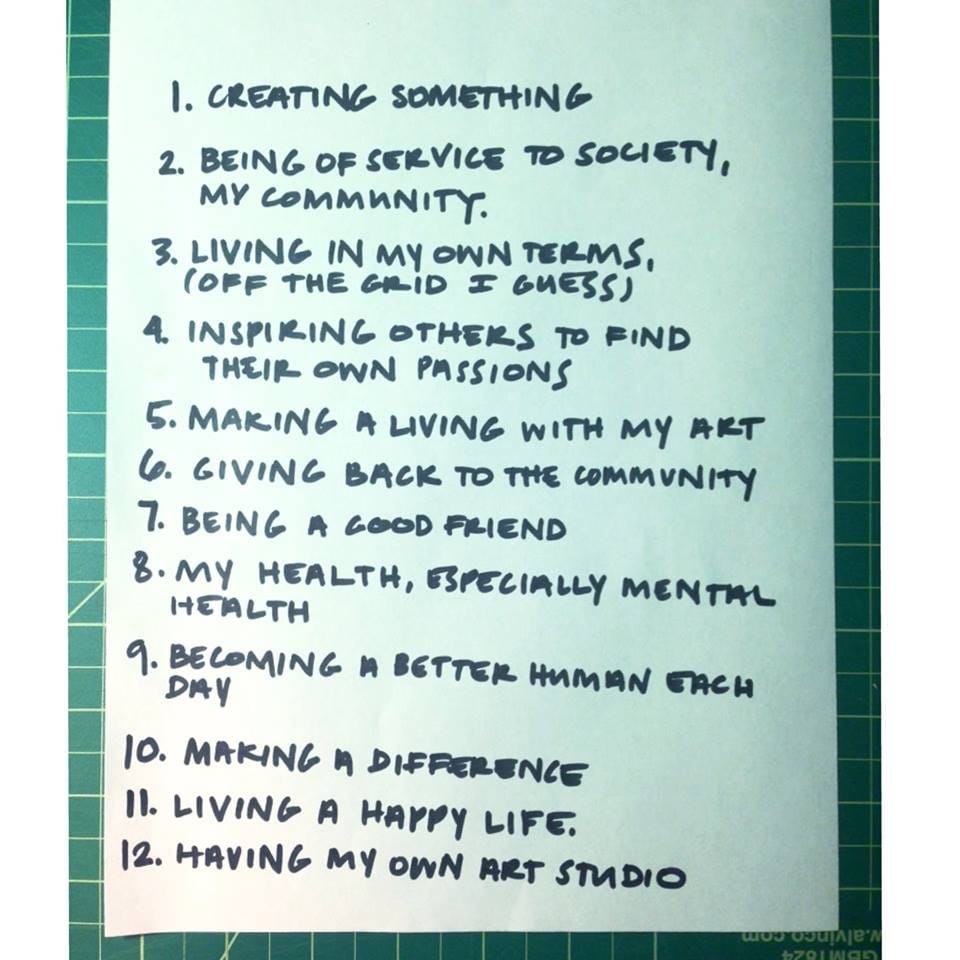 1. CREATING SOMETHING
2. BEING OF SERVICE TO SOCIETY,
MY COMMUNITY.
3. LIVING IN MY OWN TERMS,
(OFF THE GRID I GUESS)
4. INSPIRING OTHERS TO FIND
THEIR OWN PASSIONS
5. MAKING A LIVING WITH MY ART
6. GIVING BACK TO THE COMMUNITY
7. BEING A GOOD FRIEND
8. MY HEALTH, ESPECIALLY MENTAL
HEALTH
9. BECOMING A BETTER HUMAN EACH
DAY
10. MAKING A DIFFERENCE
11. LIVING A HAPPY LIFE.
12. HAVING MY OWN ART STUDIO
w.alvinco.com
GBM1824